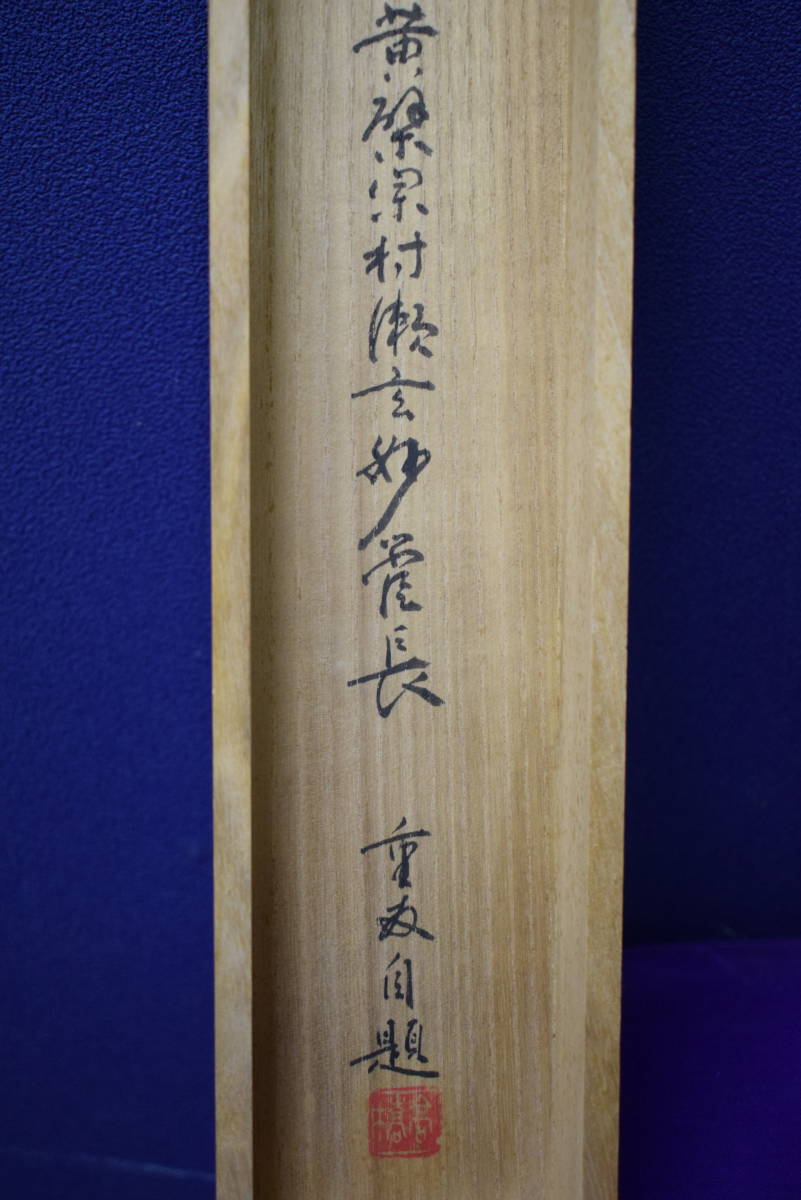 黄檗宗村瀬玄妙管長 重友自題
高橋